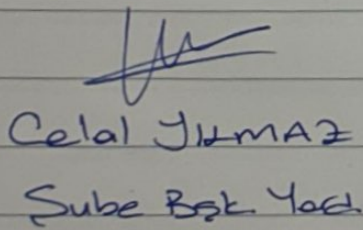 Celal YILMAZ
Şube Bşk. Yrd.